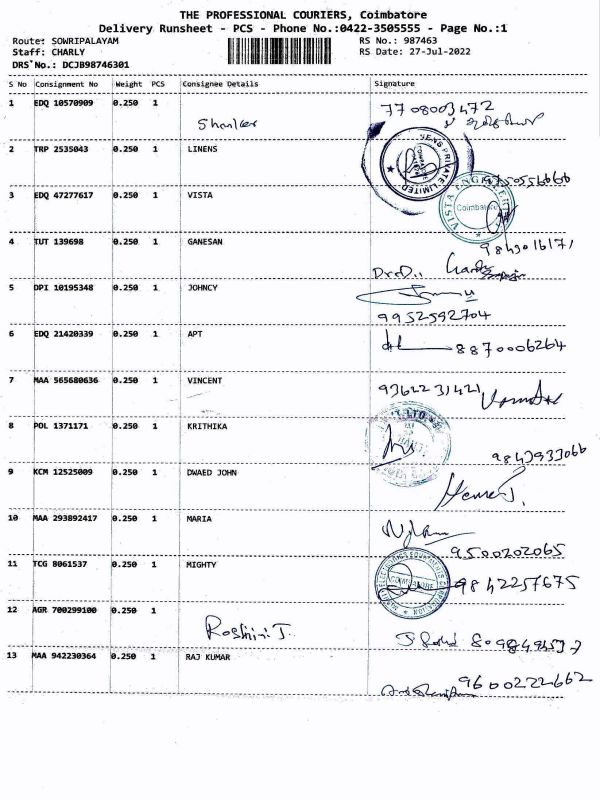 THE PROFESSIONAL COURIERS, Coimbatore
Delivery Runsheet - PCS - Phone No.:0422-3505555 - Page No.:1
Route: SOWRIPALAYAM RS No.: 987463
Staff: CHARLY RS Date: 27-Jul-2022
DRS No.: DCJB98746301
S No Consignment No Weight PCS Consignee Details Signature
1 EDQ 10570909 0.250 1 7708003472
Shanker
2 TRP 2535043 0.250 1 LINENS
PRIVATE LIMITED
3 EDQ 47277617 0.250 1 VISTA
VISTA ENGINEERING
Coimbatore
4 TUT 139698 0.250 1 GANESAN 9843016171
5 DPI 10195348 0.250 1 JOHNCY
9952592704
6 EDQ 21420339 0.250 1 APT
8870006264
7 MAA 565680636 0.250 1 VINCENT 9362231421
8 POL 1371171 0.250 1 KRITHIKA
LTD.
9843933066
9 KCM 12525009 0.250 1 DWAED JOHN
10 MAA 293892417 0.250 1 MARIA
9500202065
11 TCG 8061537 0.250 1 MIGHTY
COIMBATORE
9842257675
12 AGR 700299100 0.250 1
Roshini J.
13 MAA 942230364 0.250 1 RAJ KUMAR
9600222662